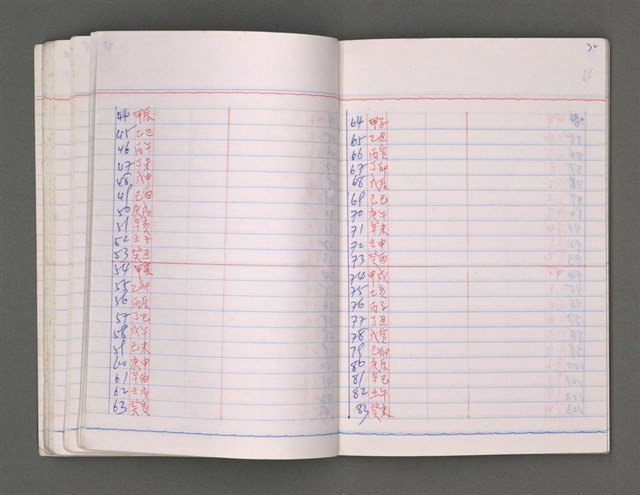 44 甲辰
45 乙巳
46 丙午
47 丁未
48 戊申
49 己酉
50 庚戌
51 辛亥
52 壬子
53 癸丑
54 甲寅
55 乙卯
56 丙辰
57 丁巳
58 戊午
59 己未
60 庚申
61 辛酉
62 壬戌
63 癸亥
64 甲子
65 乙丑
66 丙寅
67 丁卯
68 戊辰
69 己巳
70 庚午
71 辛未
72 壬申
73 癸酉
74 甲戌
75 乙亥
76 丙子
77 丁丑
78 戊寅
79 己卯
80 庚辰
81 辛巳
82 壬午
83 癸未